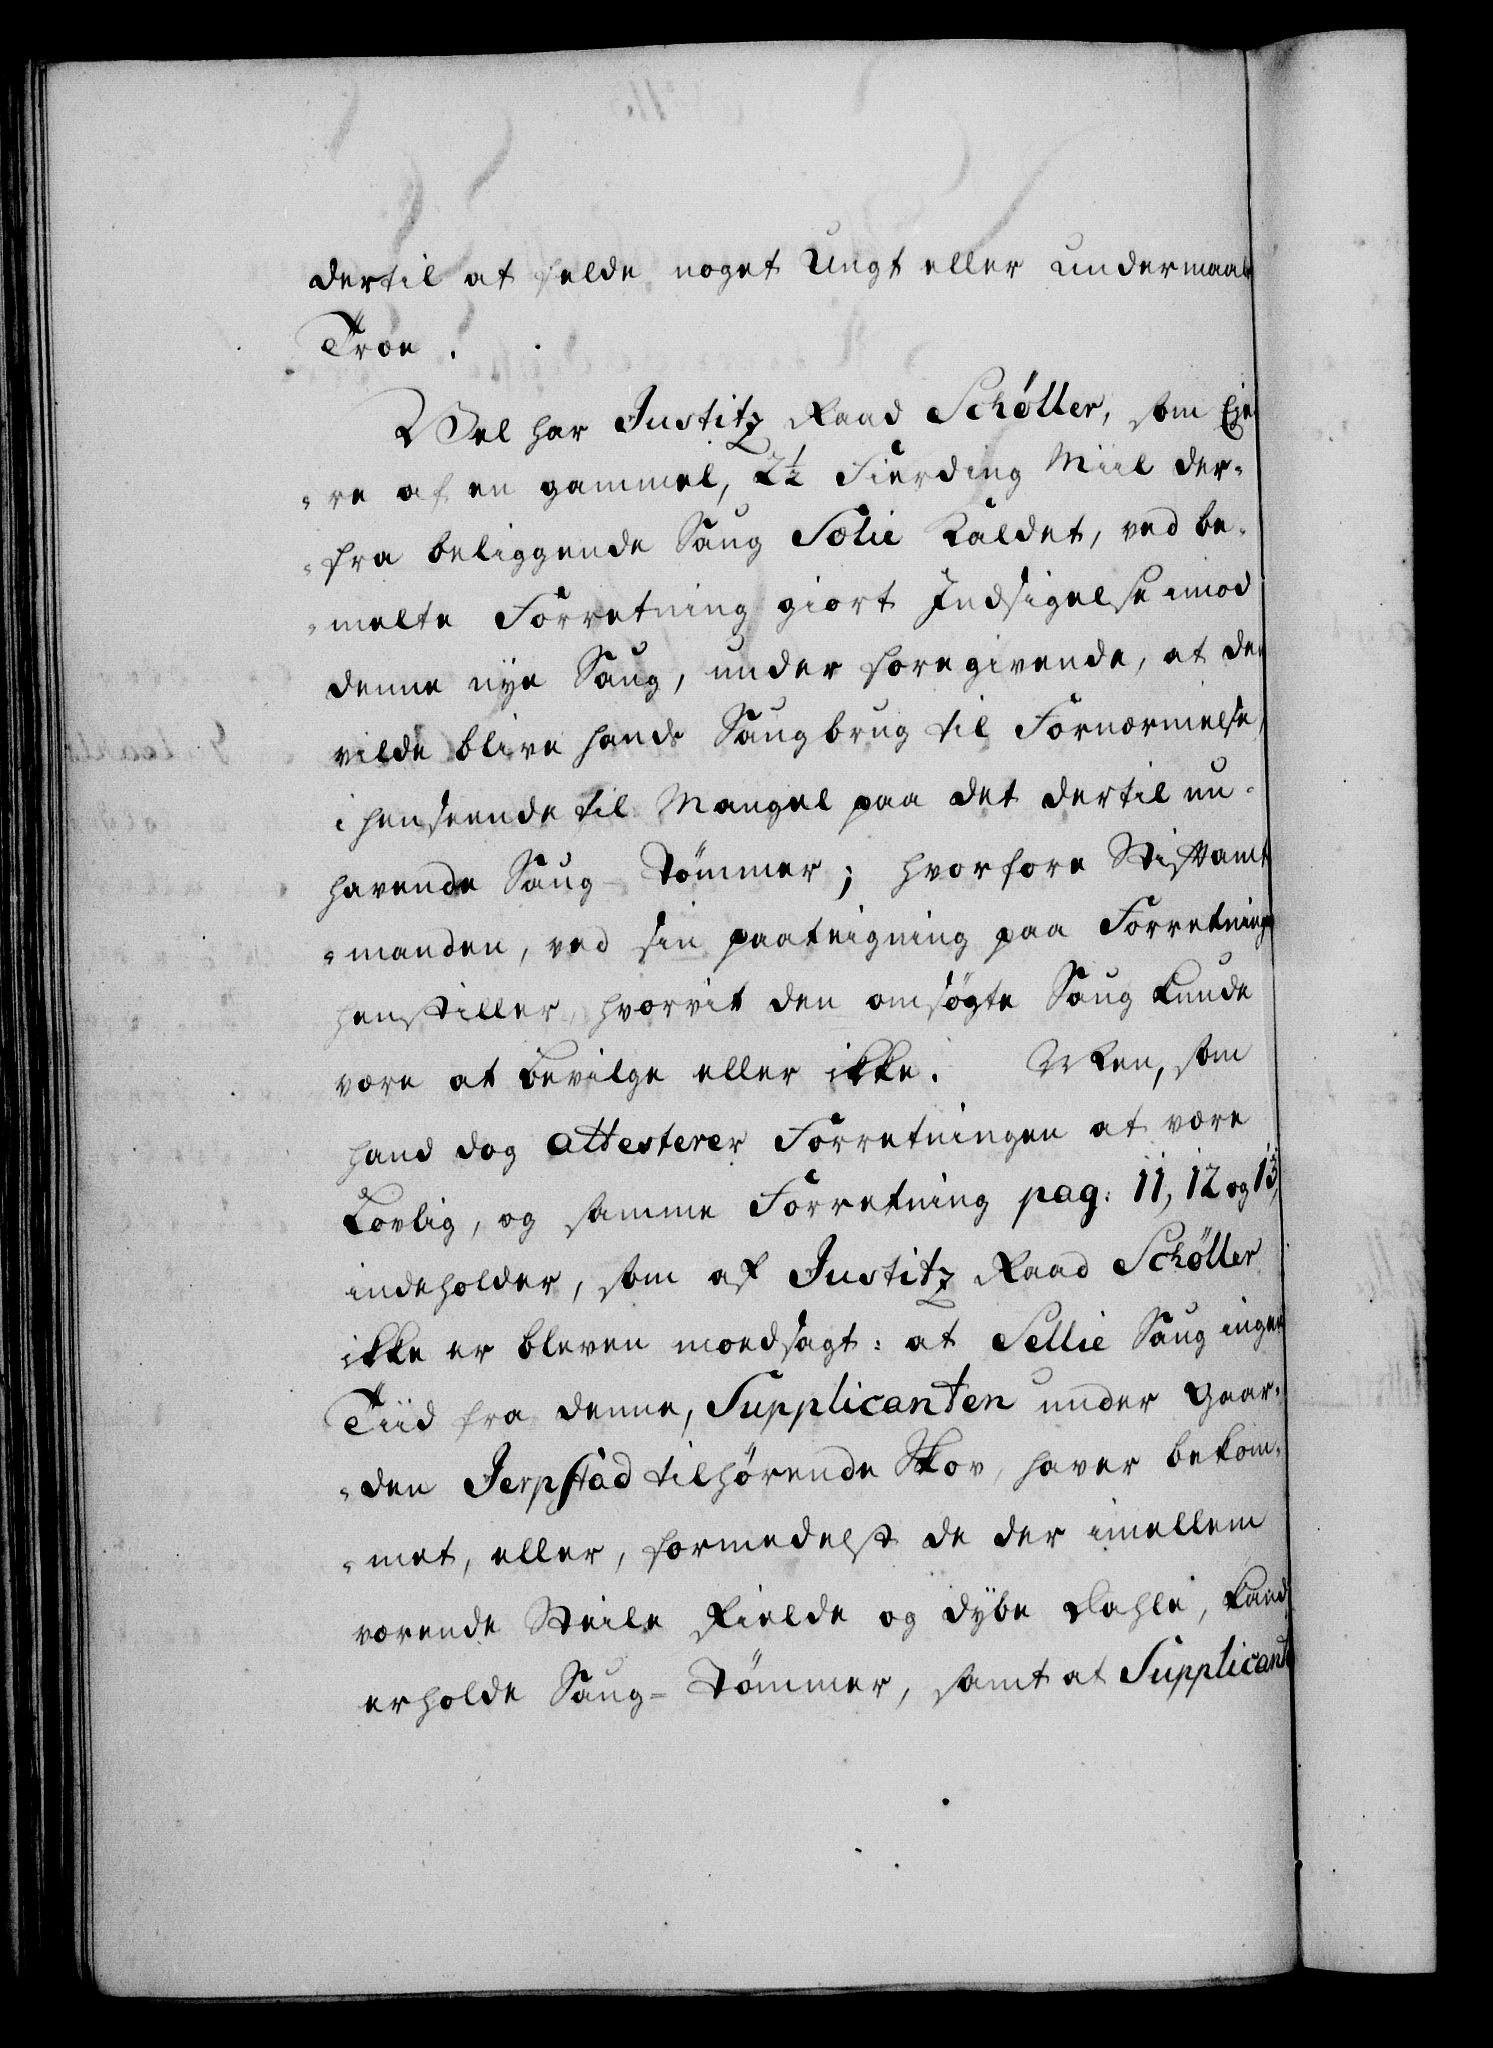 dertil at fælde noget Ungt eller undermaals
Træe.
Vel har Justitz Raad Schøller, som Eje-
-re af en gammel, 2½ Fierding Miil der-
-fra beliggende Saug Sælie kaldet, ved be-
-melte Forretning giort Indsigelse imod
denne nye Saug, under foregivende, at det
vilde blive hands Saugbrug til Fornærmelse,
i henseende til Mangel paa det dertil un-
havende Saug-Tømmer; hvorfore Stiftamt
-manden, ved sin paateigning paa Forretningen
henstiller, hvorvit den omsøgte Saug kunde
være at bevilge eller ikke. Men, som
hand dog attesterer Forretningen at være
Lovlig, og samme Forretning pag: 11, 12 og 13,
indeholder, som af Justitz Raad Schøller
ikke er bleven moedsagt: at Sellie Saug ingen
Tiid fra denne, Supplicanten under Gaar-
-den Jerpstad tilhørende Skov, haver bekom-
-met, eller, formedelst de der imellem
værende Steile Fielde og dybe Dahle, kand
erholde Saug-Tømmer, samt at Supplicant